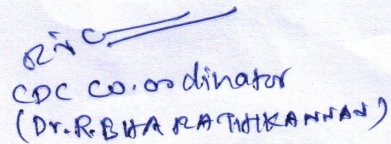 CDC CO.ordinator
(Dr.R.BHARATHIKANNAN)